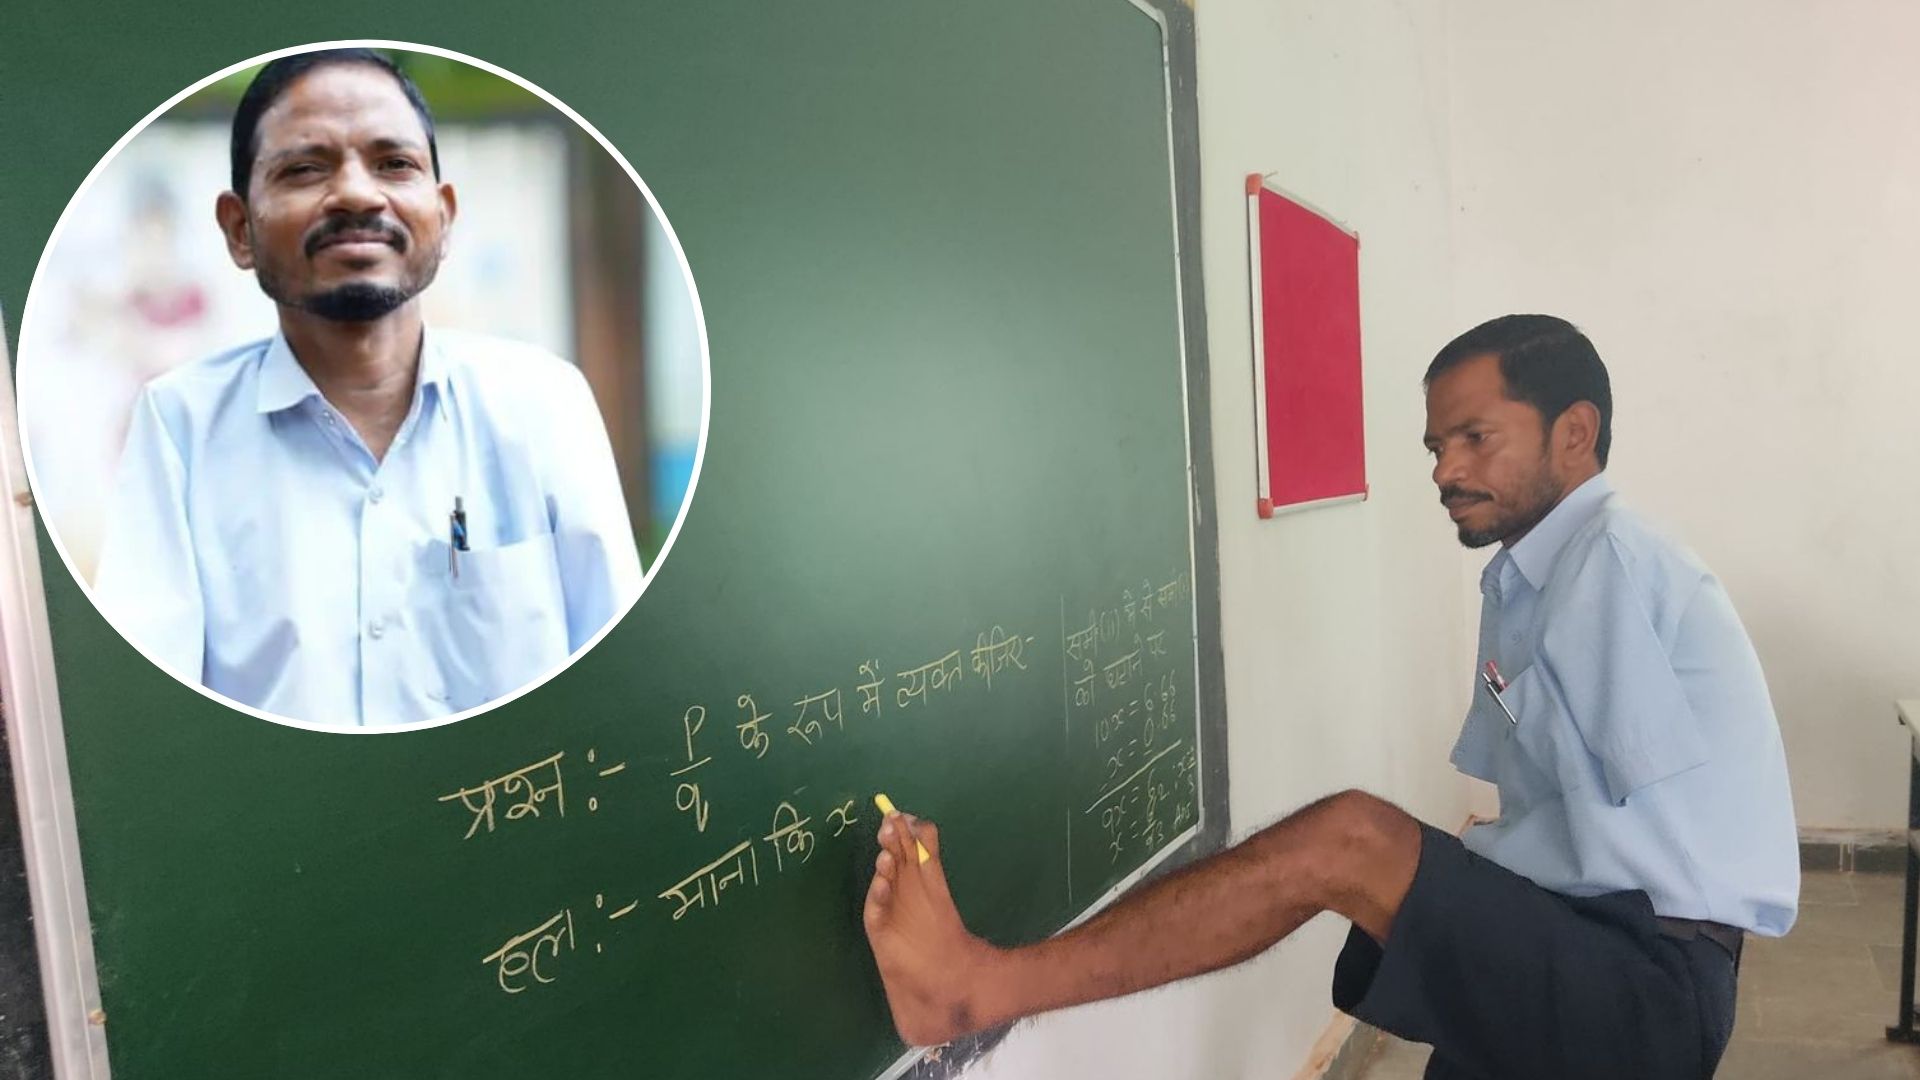 प्रश्न :- p/q के रूप में व्यक्त कीजिए-
हल :- माना कि x
समी (ii) में से समी (i)
को घटाने पर
10x = 6.66
x = 0.66
9x = 6